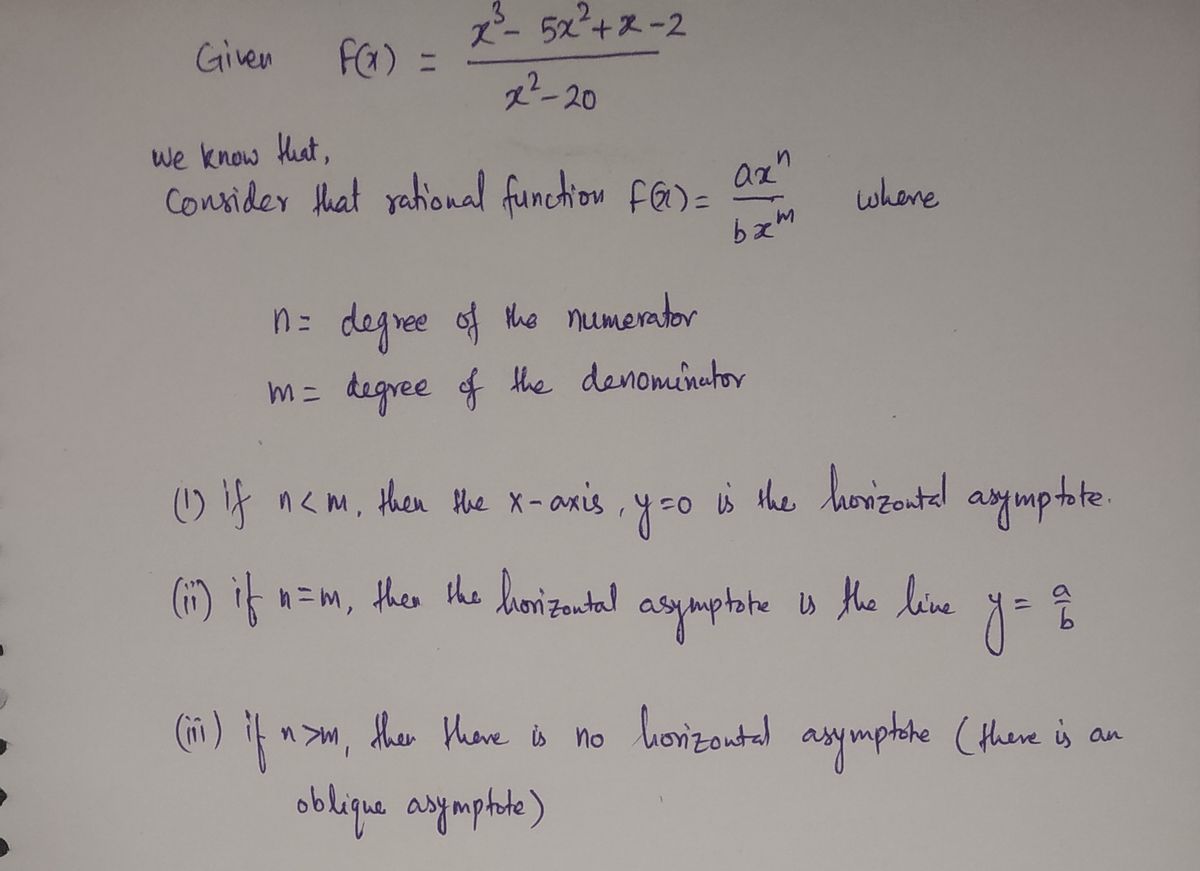 Given f(x) = x³ - 5x² + x - 2 / x² - 20
We know that,
Consider that rational function f(x) = axⁿ / bxᵐ where
n = degree of the numerator
m = degree of the denominator
(i) if n < m, then the x-axis, y=0 is the horizontal asymptote.
(ii) if n = m, then the horizontal asymptote is the line y = a/b
(iii) if n > m, then there is no horizontal asymptote (there is an
oblique asymptote)